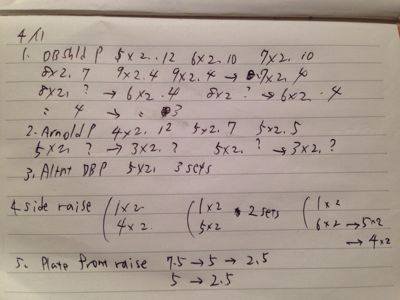 4/1
1. DB Shld P 5x2. 12 6x2. 10 7x2. 10
8x2. 7 9x2. 4 9x2. 4 → 7x2. 4
8x2. ? → 6x2. 4 8x2 ? → 6x2. 4
4 → 3
2. Arnold P 4x2. 12 5x2. 7 5x2. 5
5x2. ? → 3x2. ? 5x2. ? → 3x2. ?
3. Altnt DBP 5x2. 3 sets
4. side raise (1x2 (1x2 2 sets (1x2
4x2 5x2 6x2 → 5x2
→ 4x2
5. Plate front raise 7.5 → 5 → 2.5
5 → 2.5